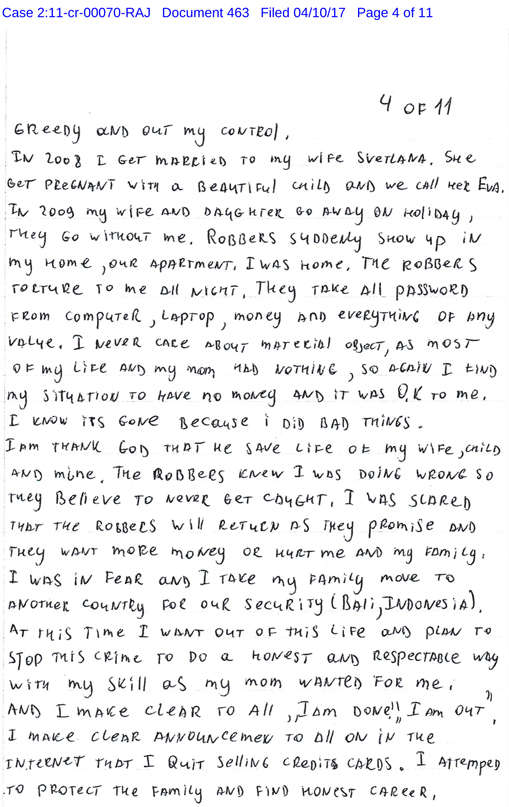 Case 2:11-cr-00070-RAJ Document 463 Filed 04/10/17 Page 4 of 11
4 OF 11
GREEDY AND OUT my CONTROL,
IN 2008 I GET MARRIED TO my WIFE SVETLANA. SHE
GET PREGNANT WITH a BEAUTIFUL CHILD AND we CALL HER EVA.
IN 2009 my WIFE AND DAUGHTER GO AWAY ON HOLIDAY,
THEY GO WITHOUT me. ROBBERS SUDDENLY SHOW UP IN
my HOME, OUR APARTMENT. I WAS HOME. THE ROBBERS
TORTURE TO me All NIGHT. THEY TAKE All PASSWORD
FROM COMPUTER, LAPTOP, money AND EVERYTHING OF ANY
VALUE. I NEVER CARE ABOUT MATERIAL OBJECT, AS MOST
OF my LIFE AND my mom HAD NOTHING, SO AGAIN I FIND
my SITUATION TO HAVE no money AND IT WAS O.K TO me.
I KNOW ITS GONE BECAUSE i DID BAD THINGS.
I AM THANK GOD THAT HE SAVE LIFE OF my WIFE, CHILD
AND mine. THE ROBBERS KNEW I WAS DOING WRONG SO
THEY BELIEVE TO NEVER GET CAUGHT. I WAS SCARED
THAT THE ROBBERS WILL RETURN AS THEY PROMISE AND
THEY WANT MORE MONEY OR HURT me AND my FAMILY.
I WAS IN FEAR AND I TAKE my FAMILY MOVE TO
ANOTHER COUNTRY FOR OUR SECURITY (BALI, INDONESIA).
AT THIS TIME I WANT OUT OF THIS LIFE AND PLAN TO
STOP THIS CRIME TO DO a HONEST AND RESPECTABLE WAY
WITH my SKILL AS my mom WANTED FOR me.
AND I MAKE CLEAR TO All „I AM DONE!" „I AM OUT",
I MAKE CLEAR ANNOUNCEMEN TO All ON IN THE
INTERNET THAT I QUIT SELLING CREDITS CARDS. I ATTEMPED
TO PROTECT THE FAMILY AND FIND HONEST CAREER,